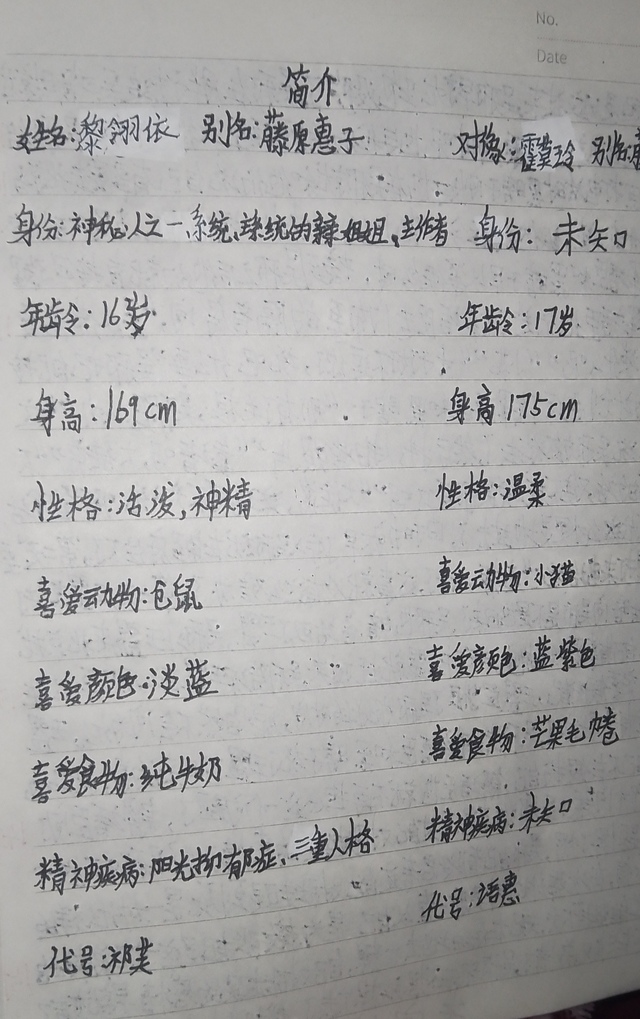 No.
Date
简介
姓名:黎翎依 别名:藤原惠子 对像:霍蓂玲 别名:
身份:神秘人之一,系统,球统的亲姐姐,主作者 身份:未知
年龄:16岁 年龄:17岁
身高:169cm 身高 175cm
性格:活泼,神精 性格:温柔
喜爱动物:仓鼠 喜爱动物:小猫
喜爱颜色:淡蓝 喜爱颜色:蓝紫色
喜爱食物:纯牛奶 喜爱食物:芒果毛卷
精神疾病:阳光抑郁症、三重人格 精神疾病:未知
代号:祁芙 代号:语惠